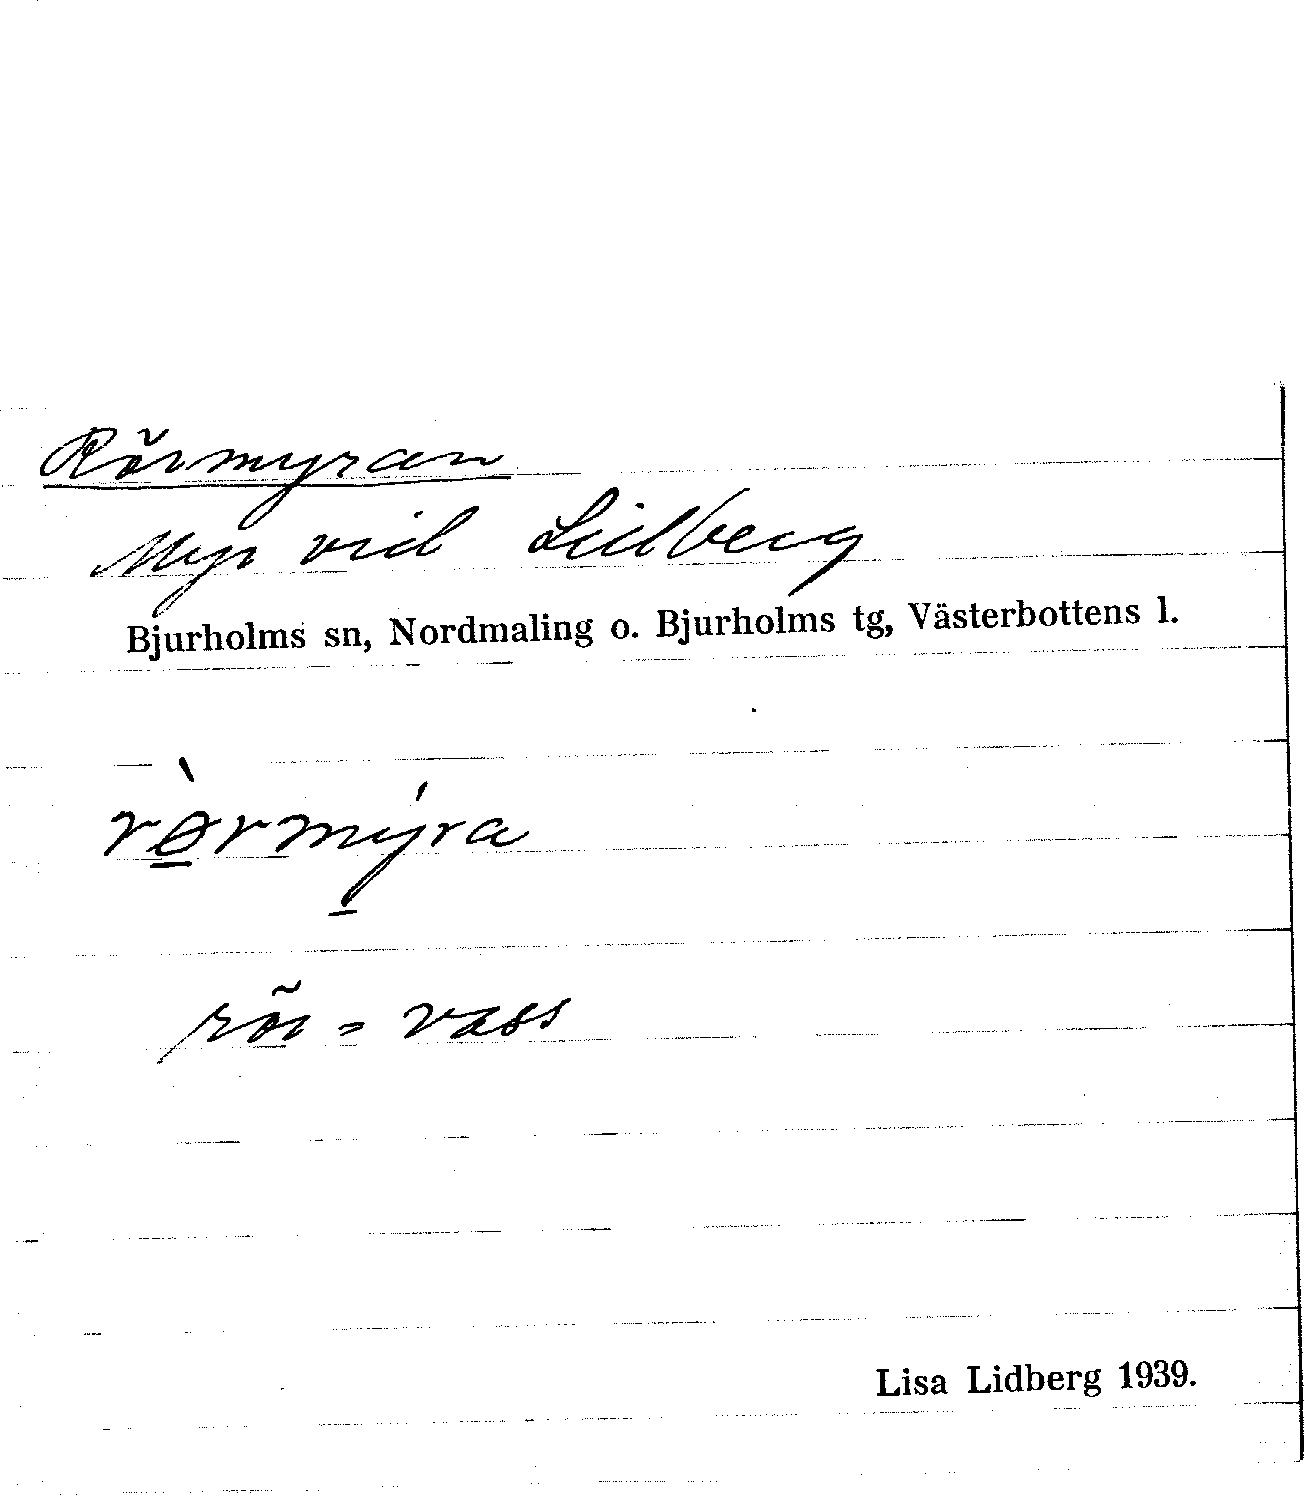 Rörmyran
Myr vid Lidberg
Bjurholms sn, Nordmaling o. Bjurholms tg, Västerbottens l.
rə̱̀rmý̱ra
rör = vass
Lisa Lidberg 1939.